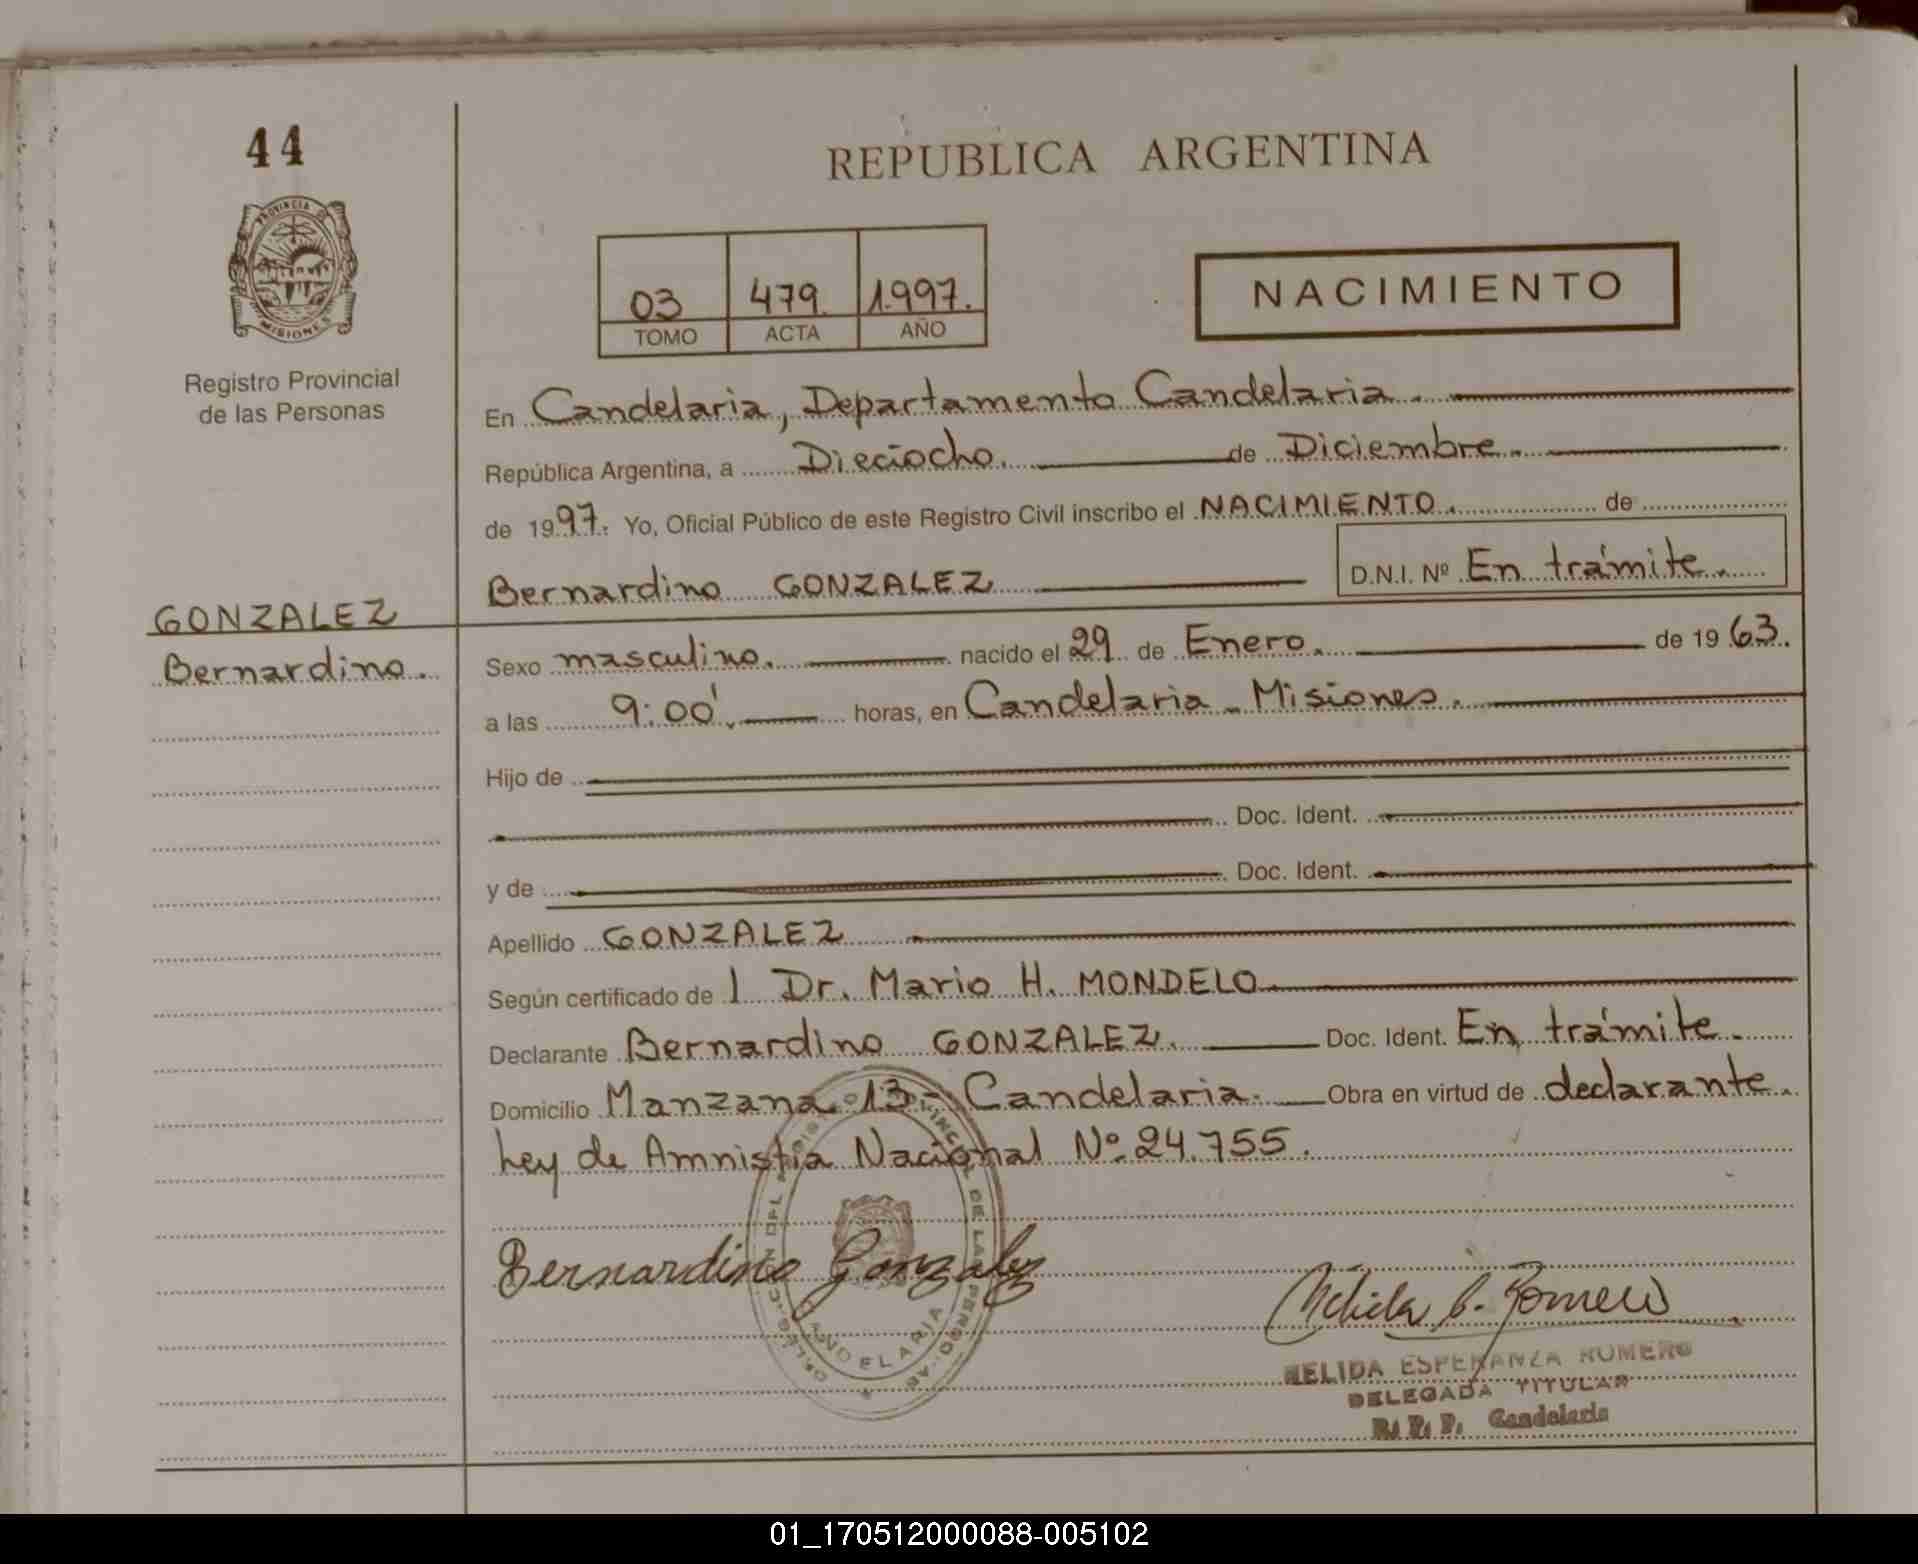 44
PROVINCIA DE
MISIONES
Registro Provincial
de las Personas
GONZALEZ
Bernardino.
REPUBLICA ARGENTINA
03 479. 1.997.
TOMO ACTA AÑO
NACIMIENTO
En Candelaria, Departamento Candelaria.
República Argentina, a Dieciocho. de Diciembre.
de 1997. Yo, Oficial Público de este Registro Civil inscribo el NACIMIENTO. de
Bernardino GONZALEZ D.N.I. Nº En trámite.
Sexo masculino. nacido el 29 de Enero. de 19 63.
a las 9:00'. horas, en Candelaria - Misiones.
Hijo de
Doc. Ident.
y de Doc. Ident.
Apellido GONZALEZ
Según certificado de 1 Dr. Mario H. MONDELO.
Declarante Bernardino GONZALEZ. Doc. Ident. En trámite.
Domicilio Manzana 13- Candelaria. Obra en virtud de declarante.
Ley de Amnistía Nacional Nº 24.755.
Bernardino Gonzalez
CANDELARIA
NELIDA ESPERANZA ROMERO
DELEGADA TITULAR
R. P. P. Candelaria
01_170512000088-005102